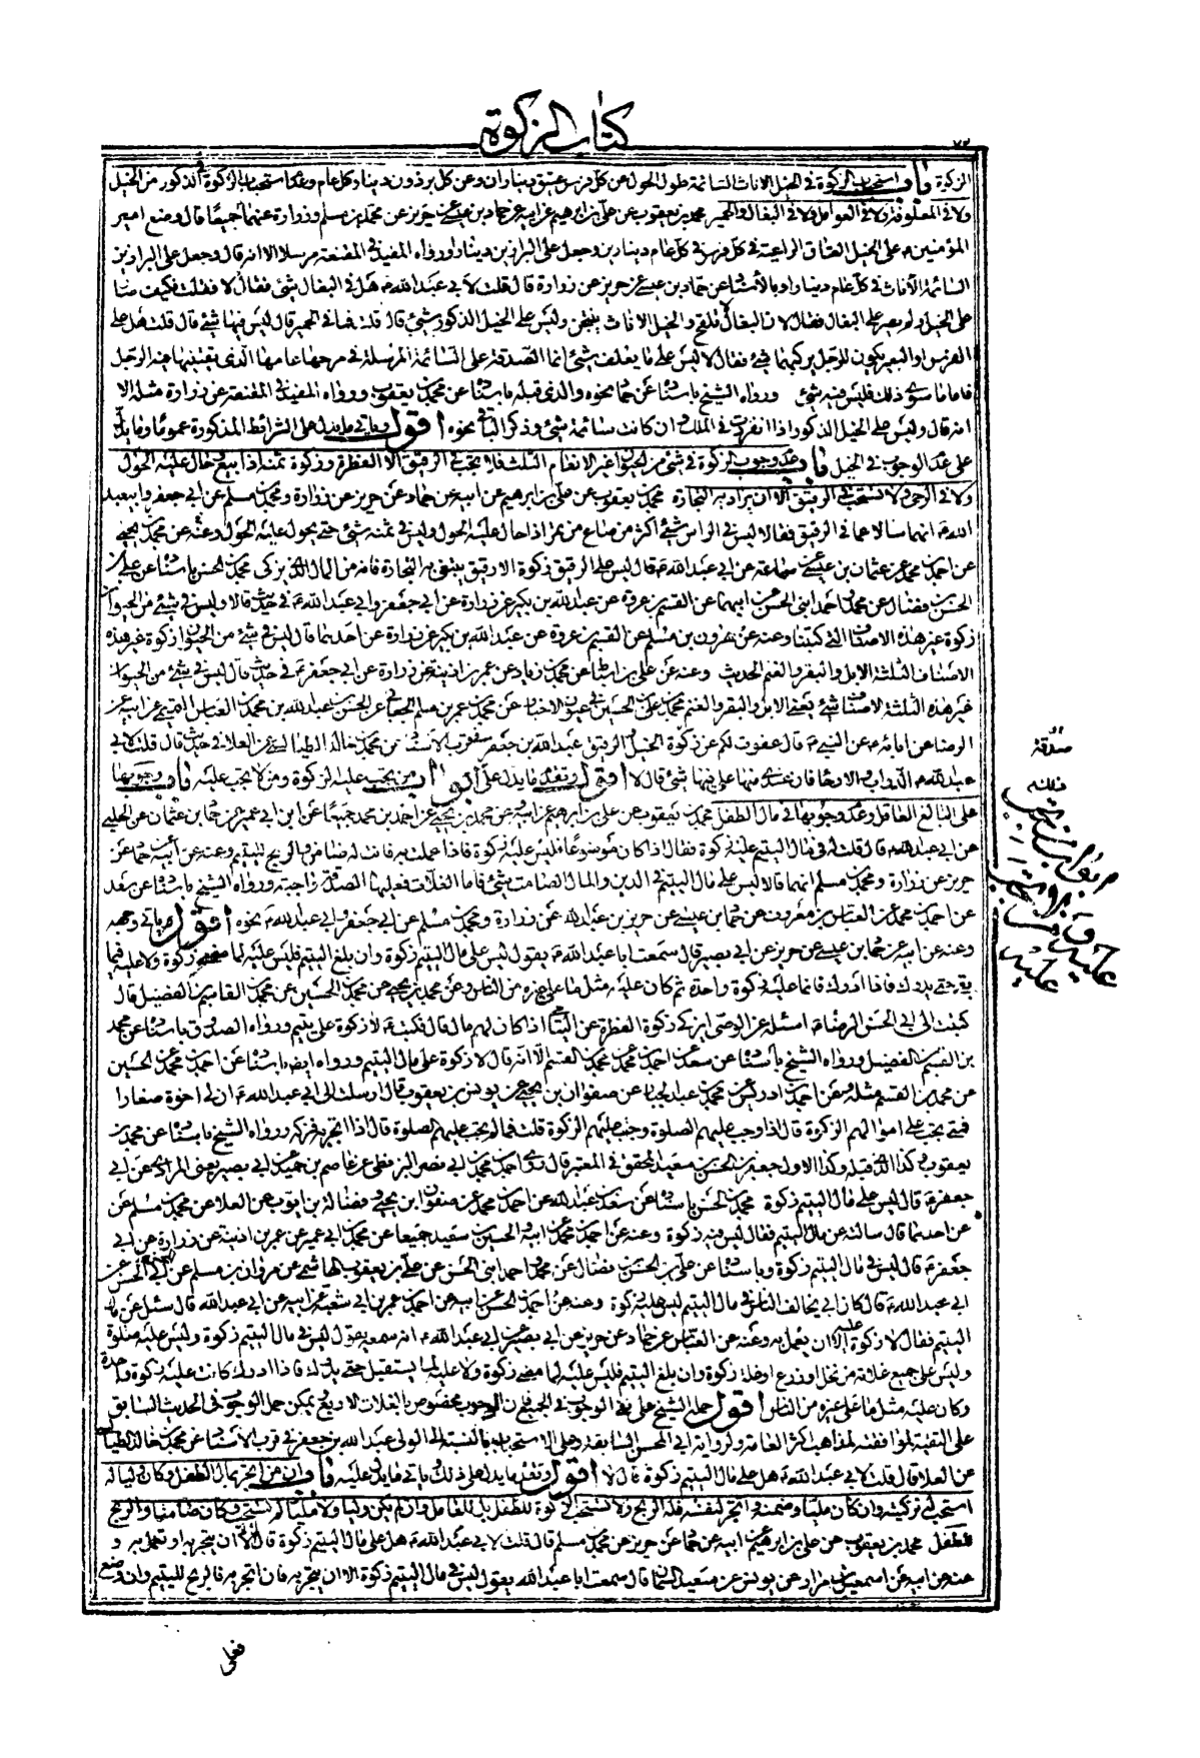 كتاب الزكوة
الزكوة باب استحباب الزكوة في الخيل الاناث السائمة طول الحول عن كل فرس عتيق ديناران وعن كل برذون دينار كل عام وعدم استحباب الزكوة في الذكور من الخيل
ولا في المعلوفة ولا في العوامل ولا في البغال والحمير محمد بن يعقوب عن علي بن ابراهيم عن ابيه عن حماد بن عيسى عن حريز عن محمد بن مسلم وزرارة عنهما جميعًا قال وضع امير
المؤمنين ع على الخيل العتاق الراعية في كل فرس في كل عام دينارين وجعل على البراذين دينارا ورواه المفيد في المقنعة مرسلا الا انه قال وجعل على البراذين
السائمة الاناث في كل عام دينارا وبالاسناد عن حماد بن عيسى عن حريز عن زرارة قال قلت لابي عبد الله ع هل في البغال شئ فقال لا فقلت فكيف صار
على الخيل ولم يصر على البغال فقال لان البغال لا تلقح والخيل الاناث ينتجن وليس على الخيل الذكور شئ قال قلت فما في الحمير قال ليس فيها شئ قال قلت هل على
الفرس او البعير يكون للرجل يركبهما شئ فقال لا ليس على ما يعلف شئ انما الصدقة على السائمة المرسلة في مرجها عامها الذي يقتنيها فيه الرجل
فاما ما سوى ذلك فليس فيه شئ ورواه الشيخ باسناده عن حماد نحوه والذي قبله باسناده عن محمد بن يعقوب ورواه المفيد في المقنعة عن زرارة مثله الا
انه قال وليس على الخيل الذكور اذا انفردت في الملك وان كانت سائمة شئ وذكر الباقي نحوه اقول وياتي ما يدل على الشرائط المذكورة عمومًا وما يدل
على عدم الوجوب في الخيل باب عدم وجوب الزكوة في شئ من الحيوان غير الانعام الثلث فلا تجب في الرقيق الا الفطرة وزكوة ثمنه اذا بيع وحال عليه الحول
ولا في الرحى ولا تستحب في الرقيق الا ان يراد به التجارة محمد بن يعقوب عن علي بن ابراهيم عن ابيه عن حماد عن حريز عن زرارة ومحمد بن مسلم عن ابي جعفر وابيعبد
الله ع انهما سالا عما في الرقيق فقالا ليس في الراس شئ اكثر من صاع من تمر اذا حال عليه الحول وليس في ثمنه شئ حتى يحول عليه الحول وعنه عن محمد بن يحيى
عن احمد بن محمد عن عثمان بن عيسى عن سماعة عن ابي عبد الله ع قال ليس على الرقيق زكوة الا رقيق يبتغى به التجارة فانه من المال الذي يزكى محمد بن الحسن باسناده عن علي بن
الحسن بن فضال عن محمد واحمد ابني الحسن عن ابيهما عن القسم بن عروة عن عبد الله بن بكير عن زرارة عن ابي جعفر وابي عبد الله ع في حديث قالا وليس في شئ من الحيوان
زكوة غير هذه الاصناف التي كتبنا وعنه عن هرون بن مسلم عن القسم بن عروة عن عبد الله بن بكير عن زرارة عن احدهما قال ليس في شئ من الحيوان زكوة غير هذه
الاصناف الثلثة الابل والبقر والغنم الحديث وعنه عن علي بن اسباط عن محمد بن زياد عن عمر بن اذينة عن زرارة عن ابي جعفر ع في حديث قال ليس في شئ من الحيوان
غير هذه الثلثة الاصناف شئ يعني الابل والبقر والغنم محمد بن علي بن الحسين في عيون الاخبار عن محمد بن عمر بن مسلم الجعابي عن الحسن بن عبد الله بن محمد بن العباس الرازي عن ابيه عن
الرضا عن ابائه ع عن النبي ص قال عفوت لكم عن زكوة الخيل والرقيق عبد الله بن جعفر في قرب الاسناد عن محمد بن خالد الطيالسي عن العلا في حديث قال قلت لابي
عبد الله ع قال لا اقول وتقدم ما يدل على ذلك ابواب من تجب عليه الزكوة ومن لا تجب عليه باب وجوبها
على البالغ العاقل وعدم وجوبها في مال الطفل محمد بن يعقوب عن علي بن ابراهيم عن ابيه وعن محمد بن يحيى عن احمد بن محمد جميعًا عن ابن ابي عمير عن حماد بن عثمان عن الحلبي
عن ابي عبد الله ع قال قلت له في مال اليتيم عليه زكوة فقال اذا كان موضوعًا فليس عليه زكوة فاذا عملت به فانت له ضامن والربح لليتيم وعنه عن ابيه عن حماد عن
حريز عن زرارة ومحمد بن مسلم انهما قالا ليس على مال اليتيم في الدين والمال الصامت شئ فاما الغلات فعليها الصدقة واجبة ورواه الشيخ باسناده عن سعد
عن احمد بن محمد عن العباس بن معروف عن حماد بن عيسى عن حريز بن عبد الله عن زرارة ومحمد بن مسلم عن ابي جعفر وابي عبد الله ع نحوه اقول ياتي وجهه
وعنه عن ابيه عن حماد بن عيسى عن حريز عن ابي بصير قال سمعت ابا عبد الله ع يقول ليس على مال اليتيم زكوة وان بلغ اليتيم فليس عليه لما مضى زكوة ولا عليه فيما
بقى حتى يدرك فاذا ادرك فانما عليه زكوة واحدة ثم كان عليه مثل ما على غيره من الناس وعن محمد بن يحيى عن محمد بن الحسين عن محمد بن القاسم بن الفضيل قال
كتبت الى ابي الحسن الرضا ع اسئله عن الوصي ايزكي زكوة الفطرة عن اليتامى اذا كان لهم مال قال فكتب ع لا زكوة على يتيم ورواه الصدوق باسناده عن محمد
بن القسم بن الفضيل ورواه الشيخ باسناده عن سعد عن احمد بن محمد عن محمد بن القسم الا انه قال لا زكوة على مال اليتيم ورواه ايضا باسناده عن احمد بن محمد عن الحسين
عن محمد بن القسم مثله وعن احمد بن ادريس عن محمد بن عبد الجبار عن صفوان بن يحيى عن يونس بن يعقوب قال ارسلت الى ابي عبد الله ع ان لي اخوة صغارا
فمتى تجب على اموالهم الزكوة قال اذا وجب عليهم الصلوة وجب عليهم الزكوة قلت فما لم تجب عليهم الصلوة قال اذا اتجر به فزكه ورواه الشيخ باسناده عن محمد بن
يعقوب وكذا الذي قبله وكذا الاول جعفر بن الحسن بن سعيد المحقق في المعتبر قال روى احمد بن محمد بن ابي نصر البزنطي عن عاصم بن حميد عن ابي بصير يعني المرادي عن ابي
جعفر ع قال ليس على مال اليتيم زكوة محمد بن الحسن باسناده عن سعد بن عبد الله عن احمد بن محمد عن صفوان بن يحيى وفضالة بن ايوب عن العلا عن محمد بن مسلم عن
عن احدهما قال سالته عن مال اليتيم فقال ليس فيه زكوة وعنه عن احمد بن محمد عن ابيه والحسين بن سعيد جميعا عن محمد بن ابي عمير عن عمر بن اذينة عن زرارة عن ابي
جعفر ع قال ليس في مال اليتيم زكوة وباسناده عن علي بن الحسن بن فضال عن محمد واحمد ابني الحسن عن علي بن يعقوب الهاشمي عن مروان بن مسلم عن ابي الحسن عن
ابي عبد الله ع قال كان ابي يخالف الناس في مال اليتيم ليس عليه زكوة وعنه عن احمد بن الحسن عن ابيه عن احمد بن عمر بن ابي شعبة عن ابيه عن ابي عبد الله قال سئل عن مال
اليتيم فقال لا زكوة عليه الا ان يعمل به وعنه عن العباس عن حماد عن حريز عن ابي بصير عن ابي عبد الله ع انه سمعه يقول ليس في مال اليتيم زكوة وليس عليه صلوة
وليس على جميع غلاته من نخل او زرع او غلة زكوة وان بلغ اليتيم فليس عليه لما مضى زكوة ولا عليه لما يستقبل حتى يدرك فاذا ادرك كانت عليه زكوة واحدة
وكان عليه مثل ما على غيره من الناس اقول حمله الشيخ على نفي الوجوب في الجميع فان الوجوب مخصوص بالغلات الاربع ويمكن حمل الوجوب في الحديث السابق
على التقية لموافقته لمذاهب اكثر العامة ولرواية ابي الحسن السابقة وعلى الاستحباب بالنسبة الى الولي عبد الله بن جعفر في قرب الاسناد عن محمد بن خالد الطيالسي
عن العلا قال قلت لابي عبد الله ع هل على مال اليتيم زكوة قال لا اقول وتقدم ما يدل على ذلك وياتي ما يدل عليه باب ان من اتجر بمال الطفل وكان وليا له
استحب له تزكيته وان كان مليا وضمنه واتجر لنفسه فله الربح ولا تستحب الزكوة للطفل بل للعامل وان لم يكن وليا ولا مليا لم تستحب وكان ضامنا والربح
للطفل محمد بن يعقوب عن علي بن ابراهيم عن ابيه عن حماد عن حريز عن محمد بن مسلم قال قلت لابي عبد الله ع هل على مال اليتيم زكوة قال لا الا ان يتجر به او تعمل به و
عنه عن ابيه عن اسمعيل بن مرار عن يونس عن سعيد السمان قال سمعت ابا عبد الله يقول ليس في مال اليتيم زكوة الا ان يتجر به فان اتجر به فالربح لليتيم وان وضع
فعلى
صدقة
ابواب من تجب
عليه الزكوة
ومن لا تجب
عليه